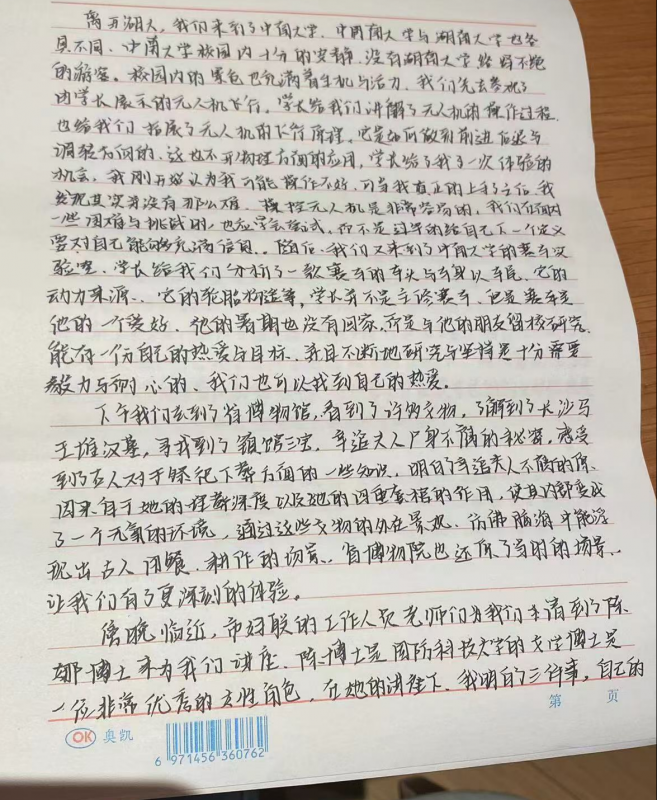 离开湖大，我们来到了中南大学，中南大学与湖南大学也各
具不同，中南大学校园内十分的安静，没有湖南大学络绎不绝
的游客。校园内的景色也充满着生机与活力，我们先去参观了
由学长展示的无人机飞行，学长给我们讲解了无人机的操作过程，
也给我们拓展了无人机的飞行原理，它是如何做到前进后退与
调整方向的，这也不开物理方面的应用，学长给了我了一次体验的
机会，我刚开始认为我可能操作不好，可当我真正的上手了之后，我
发现其实并没有那么难，操控无人机是非常容易的，我们在面对
一些困难与挑战时，也应学会尝试，而不是过早的给自己下一个定义
要对自己能够充满信息。随后，我们又来到了中南大学的赛车实
验室，学长给我们分析了一款赛车的车头与车身以车尾，它的
动力来源、它的轮胎构造等，学长并不是主修赛车，但是赛车是
他的一个爱好，他的暑期也没有回家，而是与他的朋友留校研究，
能有一份自己的热爱与目标，并且不断地研究与坚持是十分需要
毅力与耐心的，我们也可以找到自己的热爱。
下午我们去到了省博物馆，看到了许多文物，了解到了长沙马
王堆汉墓，寻找到了镇馆三宝，辛追夫人尸身不腐的秘密，感受
到了古人对于祭祀下葬方面的一些知识，明白了辛追夫人不腐的原
因来自于她的埋葬深度以及她的四重套棺的作用，使其内部变成
了一个无氧的环境，通过这些文物的外在景观，仿佛脑海中能浮
现出古人用餐、耕作的场景、省博物院也还原了当时的场景、
让我们有了更深刻的体验。
傍晚临近，市妇联的工作人员老师们为我们来请到了陈
娜博士来为我们讲座，陈博士是国防科技大学的文学博士是
一位非常优秀的女性角色，在她的讲座下，我明白了三件事，自己的
第 页
OK 奥凯
6 971456 360762